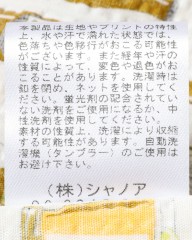 本製品は生地やプリントの特性
上、水や汗で濡れた状態では、
色落ちや色移行がおこる可能性
がございます。また経年や汗の
性質によって、変色や退色がお
こることがあります。洗濯時は
釦を閉め、ネットを使用してく
ださい。蛍光剤の配合されてい
ない洗剤をご使用になるか、中
性洗剤を使用してください。
素材の性質上、洗濯により収縮
する可能性があります。自動洗
濯機(タンブラー)のご使用は
お避け下さい。
(株)シャノア